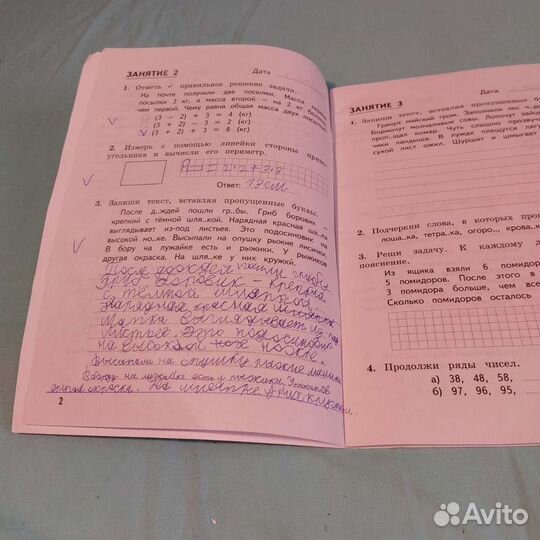 ЗАНЯТИЕ 2
Дата
1. Отметь ✓ правильное решение задачи.
На почте получили две посылки. Масса
посылки 3 кг, а масса второй — на 2 кг
чем первой. Чему равна общая масса двух посылок
(3 − 2) + 3 = 4 (кг)
(3 + 2) − 3 = 2 (кг)
(3 + 2) + 3 = 8 (кг)
2. Измерь с помощью линейки стороны прямо-
угольника и вычисли его периметр.
Ответ: 13 см
3. Запиши текст, вставляя пропущенные буквы.
После д..ждей пошли гр..бы. Гриб боровик —
крепкий с тёмной шля..кой. Нарядная красная ша..ка
выглядывает из-под листьев. Это подосиновик на
высокой но..ке. Высыпали на опушку рыжие лисички.
В бору на лужайке есть и рыжики. У рыжиков
другая окраска. На шляпке у них кружки.
После дождей пошли грибы.
Гриб боровик – крепкий
с тёмной шляпкой.
Нарядная красная
Шапка выглядывает из под
листьев. Это подосиновик
на высокой ноже ножке.
Высыпали на опушку рыжие
на лужайке есть и рыжики. У рыжиков
другая окраска. На шляпке у них кружки.
2
Дата
ЗАНЯТИЕ 3
1. Запиши текст, вставляя пропущенные бу
Грянул майский гром. Заполнили лес
Бормочут мохналивые совы. Лопочут зайц
проп..щал комар. Чуть слышно прозвуч
чики ландыша. В лужах плещутся
сухой лист ожил. Шуршит и шмыгает
2. Подчеркни слова, в которых про
лоша..ка, тетра..ка, огоро.., крова..к
3. Реши задачу. К каждому д
пояснение.
Из ящика взяли 6 помидор
5 помидоров. После этого в
3 помидора больше, чем все
Сколько помидоров осталось
4. Продолжи ряды чисел.
а) 38, 48, 58,
б) 97, 96, 95,
Avito